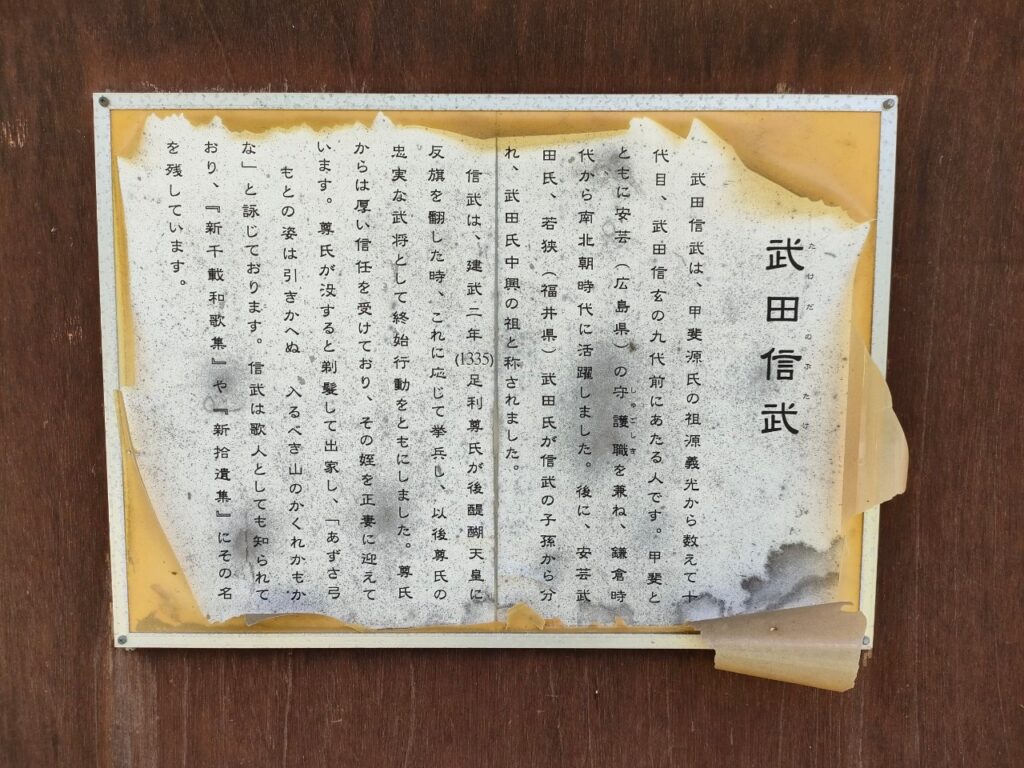 たけだのぶたけ
武田信武
武田信武は、甲斐源氏の祖源義光から数えて十
代目、武田信玄の九代前にあたる人です。甲斐と
しゅごしき
ともに安芸（広島県）の守護職を兼ね、鎌倉時
代から南北朝時代に活躍しました。後に、安芸武
田氏、若狭（福井県）武田氏が信武の子孫から分
れ、武田氏中興の祖と称されました。
信武は、建武二年(1335)足利尊氏が後醍醐天皇に
反旗を翻した時、これに応じて挙兵し、以後尊氏の
忠実な武将として終始行動をともにしました。尊氏
からは厚い信任を受けており、その姪を正妻に迎えて
います。尊氏が没すると剃髪して出家し、「あずさ弓
もとの姿は引きかへぬ　入るべき山のかくれかもか
な」と詠じております。信武は歌人としても知られて
おり、『新千載和歌集』や『新拾遺集』にその名
を残しています。